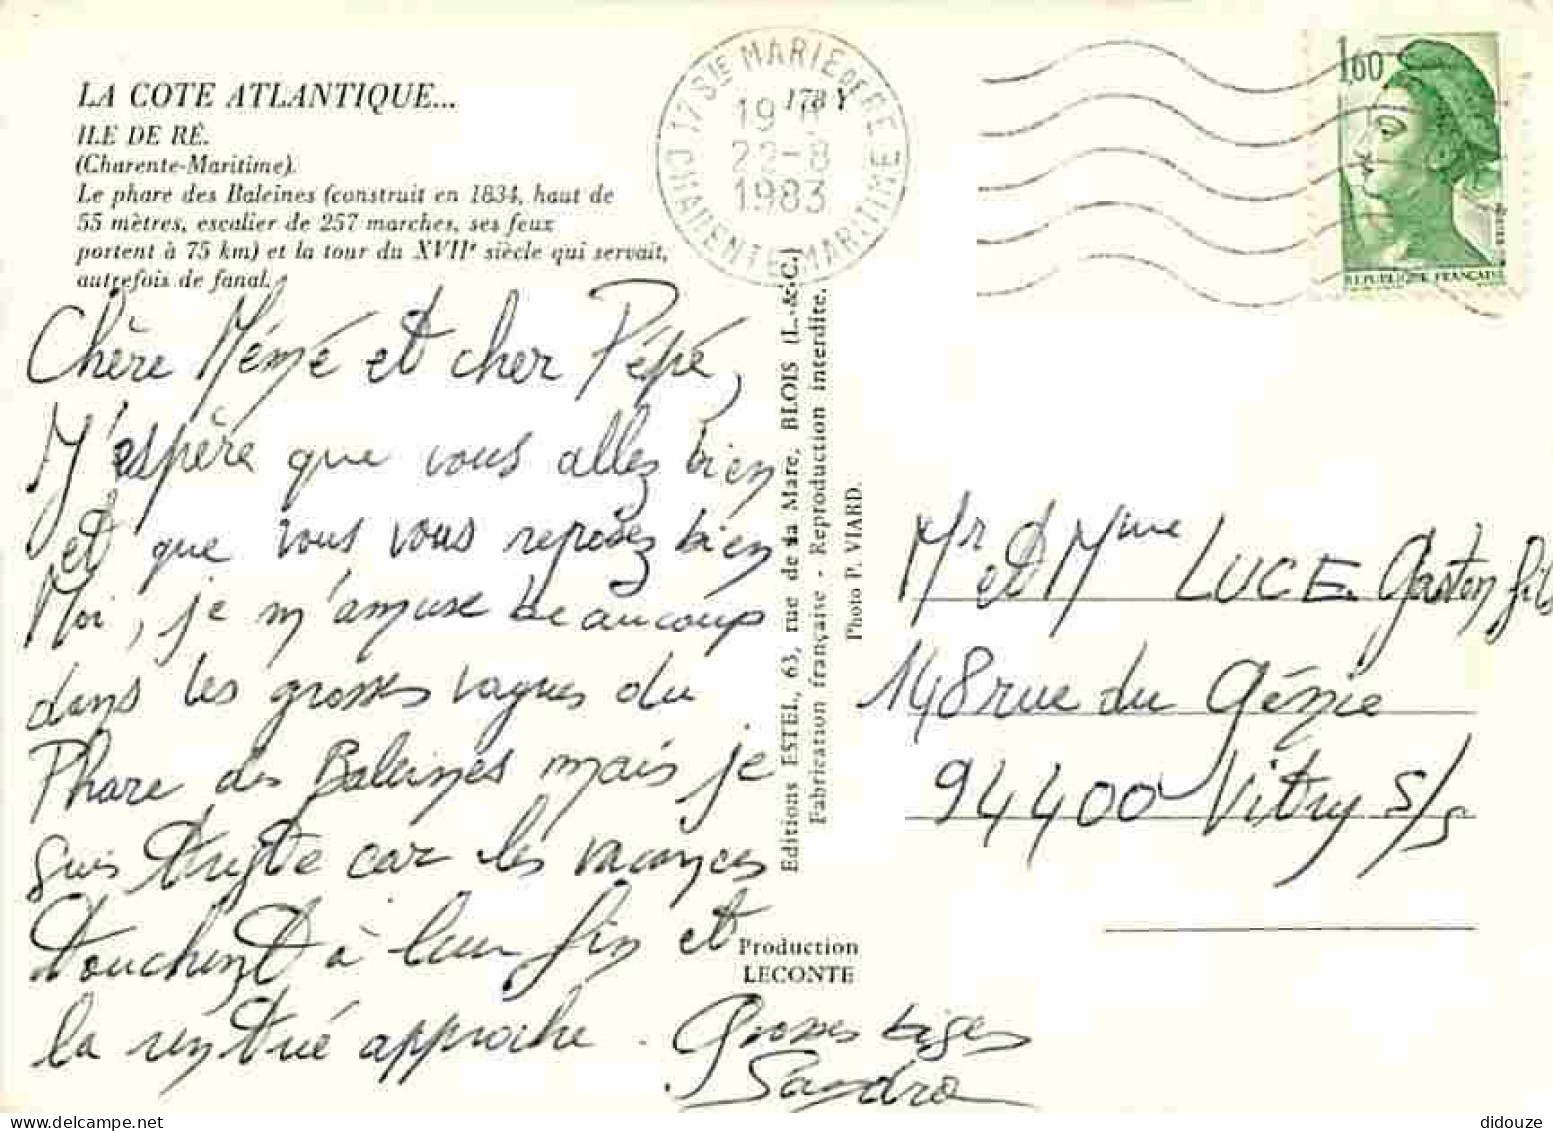 LA COTE ATLANTIQUE...
ILE DE RÉ.
(Charente-Maritime).
Le phare des Baleines (construit en 1834, haut de
55 mètres, escalier de 257 marches, ses feux
portent à 75 km) et la tour du XVIIe siècle qui servait,
autrefois de fanal.
Chère Mémé et cher Pépé,
J'espère que vous allez bien
et que vous vous reposez bien
Moi, je m'amuse beaucoup
dans les grosses vagues du
Phare des Baleines mais je
suis triste car les vacances
touchent à leur fin et
la rentré approche. Grosses bises
Sandra
Editions ESTEL, 63, rue de la Mare, BLOIS (L.-&-C.)
Fabrication française - Reproduction interdite.
Photo P. VIARD.
Production
LECONTE
17 STE MARIE DE RE
178 Y
22-8
1983
CHARENTE MARITIME
1,60
REPUBLIQUE FRANÇAISE
Mr et Mme LUCE Gaston fils
148 rue du Génie
94400 Vitry s/s
didouze